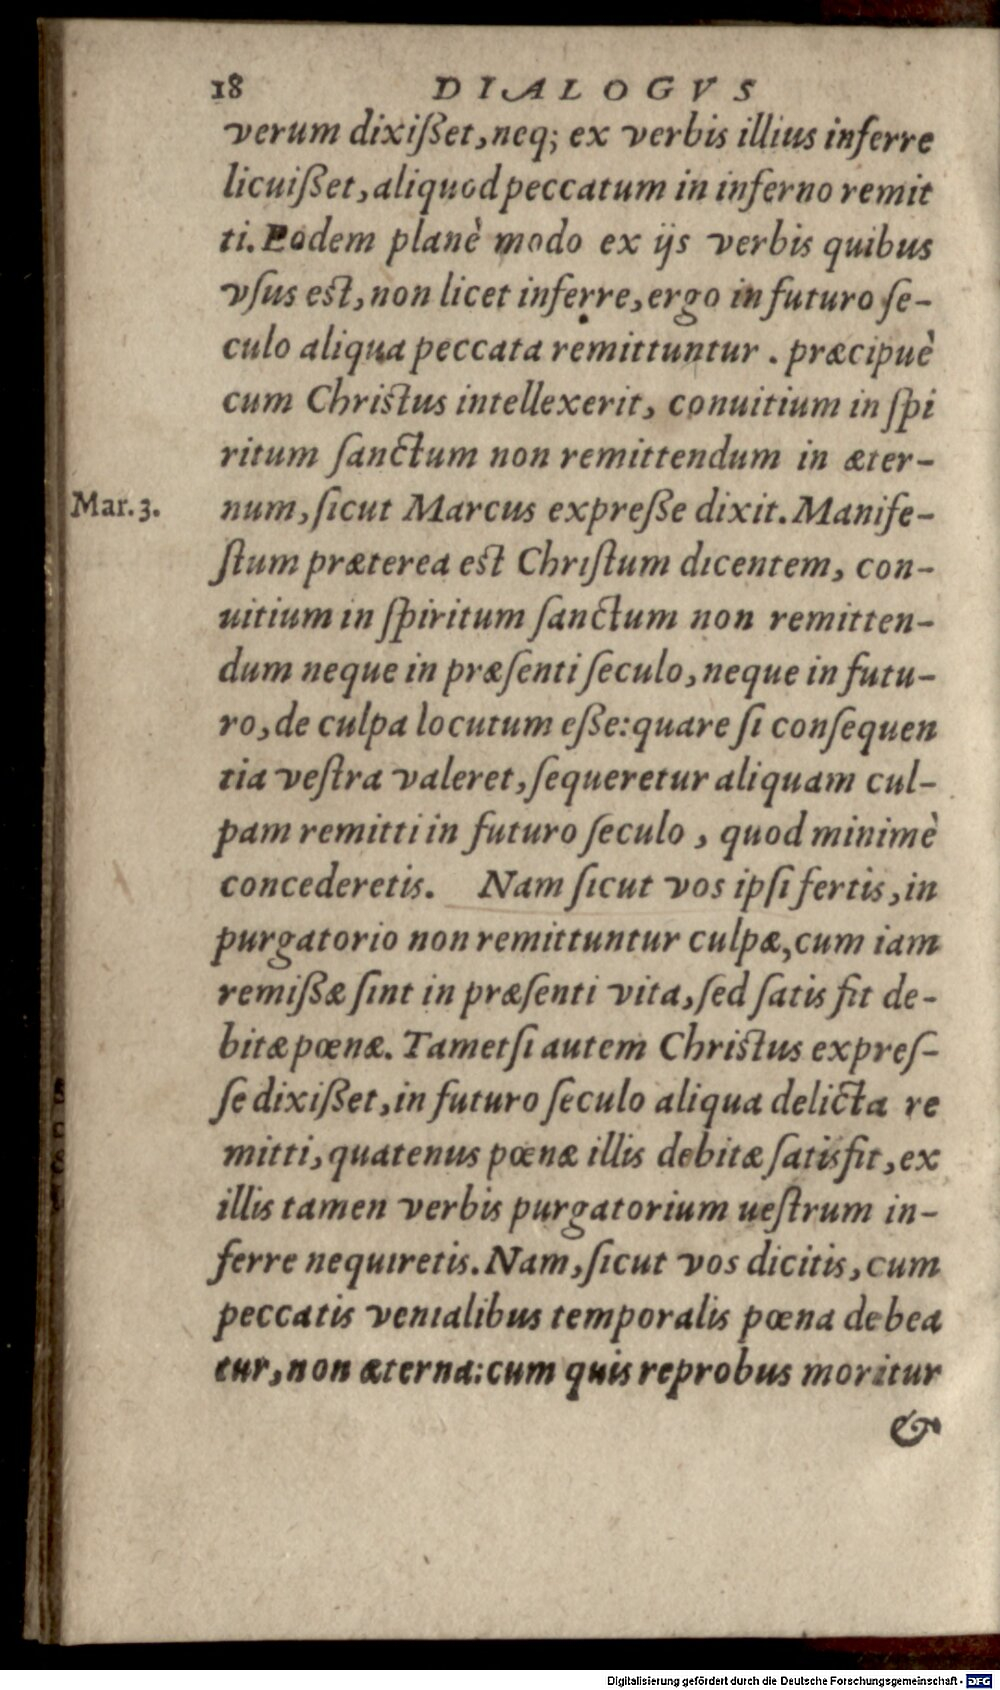 18 DIALOGVS
verum dixißet, neq; ex verbis illius inferre
licuißet, aliquod peccatum in inferno remit
ti. Eodem planè modo ex ijs verbis quibus
vſus est, non licet inferre, ergo in futuro ſe-
culo aliqua peccata remittuntur. præcipuè
cum Christus intellexerit, conuitium in ſpi
ritum ſanctum non remittendum in æter-
Mar. 3. num, ſicut Marcus expreſſe dixit. Manife-
ſtum præterea est Chriſtum dicentem, con-
uitium in ſpiritum ſanctum non remitten-
dum neque in præſenti ſeculo, neque in futu-
ro, de culpa locutum eße: quare ſi conſequen
tia veſtra valeret, ſequeretur aliquam cul-
pam remitti in futuro ſeculo, quod minimè
concederetis. Nam ſicut vos ipſi fertis, in
purgatorio non remittuntur culpæ, cum iam
remißæ ſint in præſenti vita, ſed ſatis fit de-
bitæ pœnæ. Tametſi autem Christus expreſ-
ſe dixißet, in futuro ſeculo aliqua delicta re
mitti, quatenus pœnæ illis debitæ ſatisfit, ex
illis tamen verbis purgatorium ueſtrum in-
ferre nequiretis. Nam, ſicut vos dicitis, cum
peccatis venialibus temporalis pœna debea
tur, non æterna: cum quis reprobus moritur
&
Digitalisierung gefördert durch die Deutsche Forschungsgemeinschaft - DFG